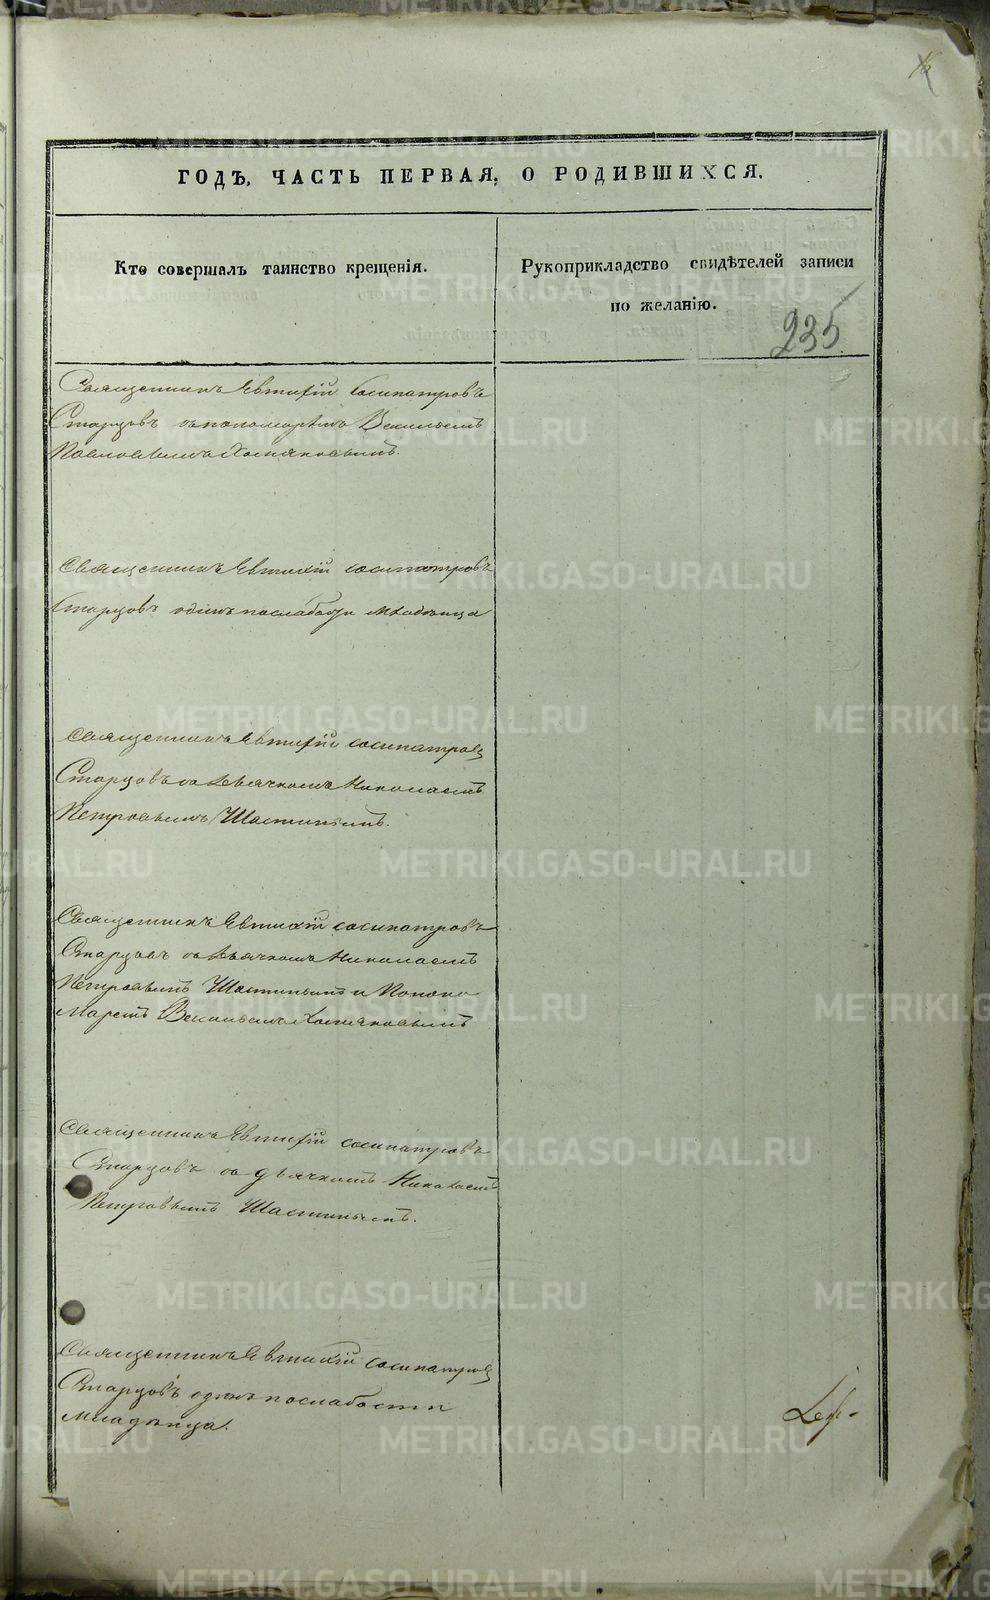 ГОДЪ, ЧАСТЬ ПЕРВАЯ, О РОДИВШИХСЯ.
Кто совершалъ таинство крещенія.
Рукоприкладство свидѣтелей записи
по желанію.
235
Священникъ Евтихій Сосипатровъ
Старцовъ съ пономаремъ Васильемъ
Павловымъ Хомяковымъ.
Священникъ Евтихій Сосипатровъ
Старцовъ одинъ по слабости младѣнца
Священникъ Евтихій Сосипатровъ
Старцовъ съ дьячкомъ Николаемъ
Петровымъ Шастинымъ.
Священникъ Евтихій Сосипатровъ
Старцовъ съ дьячкомъ Николаемъ
Петровымъ Шастинымъ и Поно
маремъ Васильемъ Хомяковымъ
Священникъ Евтихій Сосипатровъ
Старцовъ съ дьячкомъ Николаемъ
Петровымъ Шастинымъ.
Священникъ Евтихій Сосипатровъ
Старцовъ одинъ по слабости
младѣнца.
METRIKI.GASO-URAL.RU